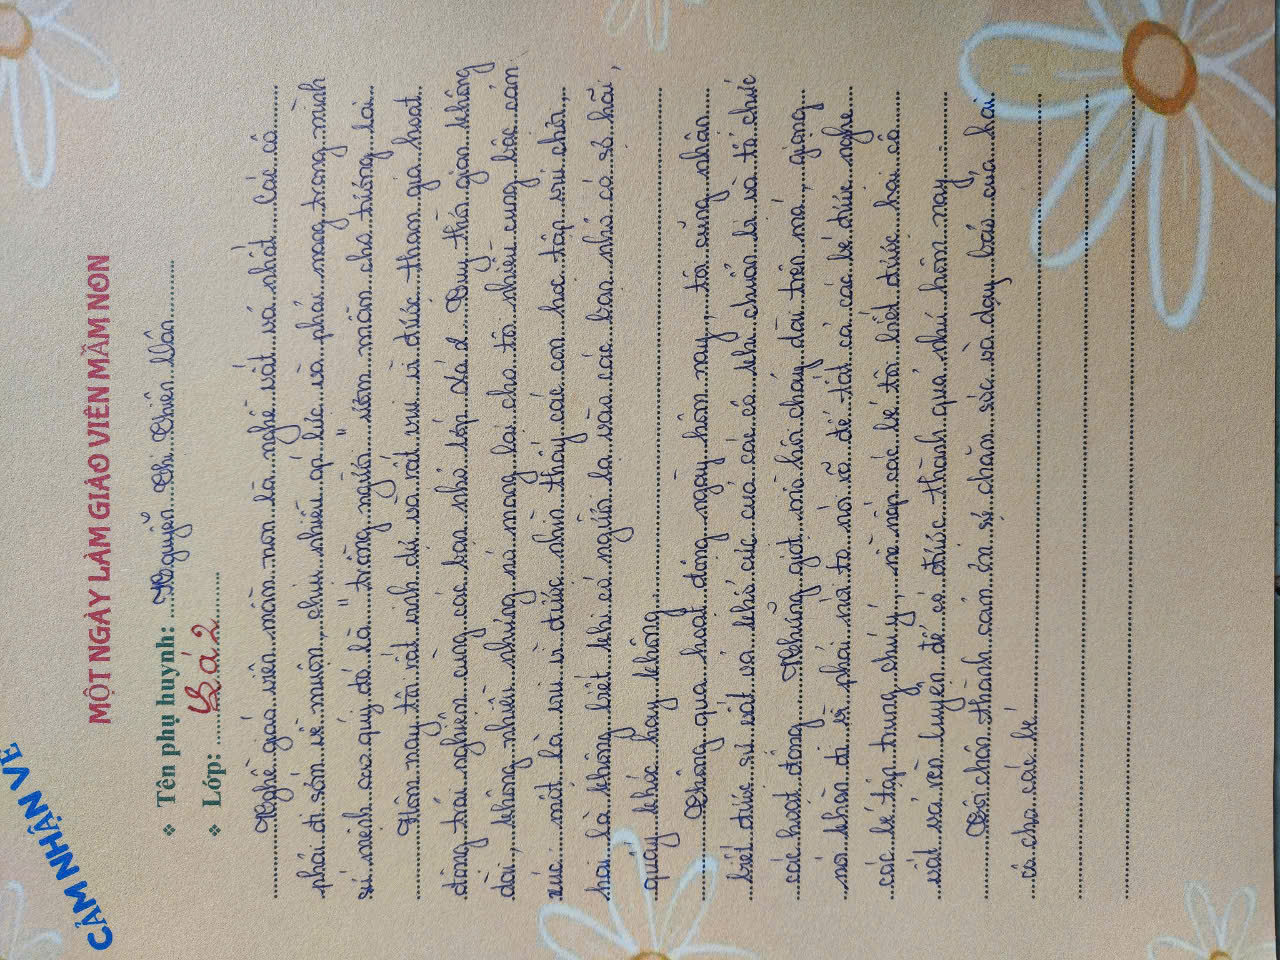 CẢM NHẬN VỀ
MỘT NGÀY LÀM GIÁO VIÊN MẦM NON
❖ Tên phụ huynh: Nguyễn Thị Thiên Vân
❖ Lớp: Lá 2
Nghề giáo viên mầm non là nghề vất vả nhất. Các cô
phải đi sớm về muộn, chịu nhiều áp lực và phải mang trong mình
sứ mệnh cao quý đó là "trồng người" ươm mầm cho tương lai.
Hôm nay tôi rất vinh dự và rất vui vì được tham gia hoạt
động trải nghiệm cùng các bạn nhỏ lớp Lá 2. Tuy thời gian không
dài, không nhiều nhưng nó mang lại cho tôi nhiều cung bậc cảm
xúc, một là vui vì được nhìn thấy các con học tập vui chơi,
hai là không biết khi có người lạ vào các bạn nhỏ có sợ hãi,
quấy khóc hay không.
Thông qua hoạt động ngày hôm nay, tôi cũng nhận
biết được sự vất vả khổ cực của các cô khi chuẩn bị và tổ chức
các hoạt động. Những giọt mồ hôi chảy dài trên má, giọng
nói khàn đi vì phải nói to nói rõ để tất cả các bé được nghe
các bé tập trung chú ý, nề nếp các bé tôi biết được hai cô
vất vả rèn luyện để có được thành quả như hôm nay.
Tôi chân thành cảm ơn sự chăm sóc và dạy bảo của hai
cô cho các bé